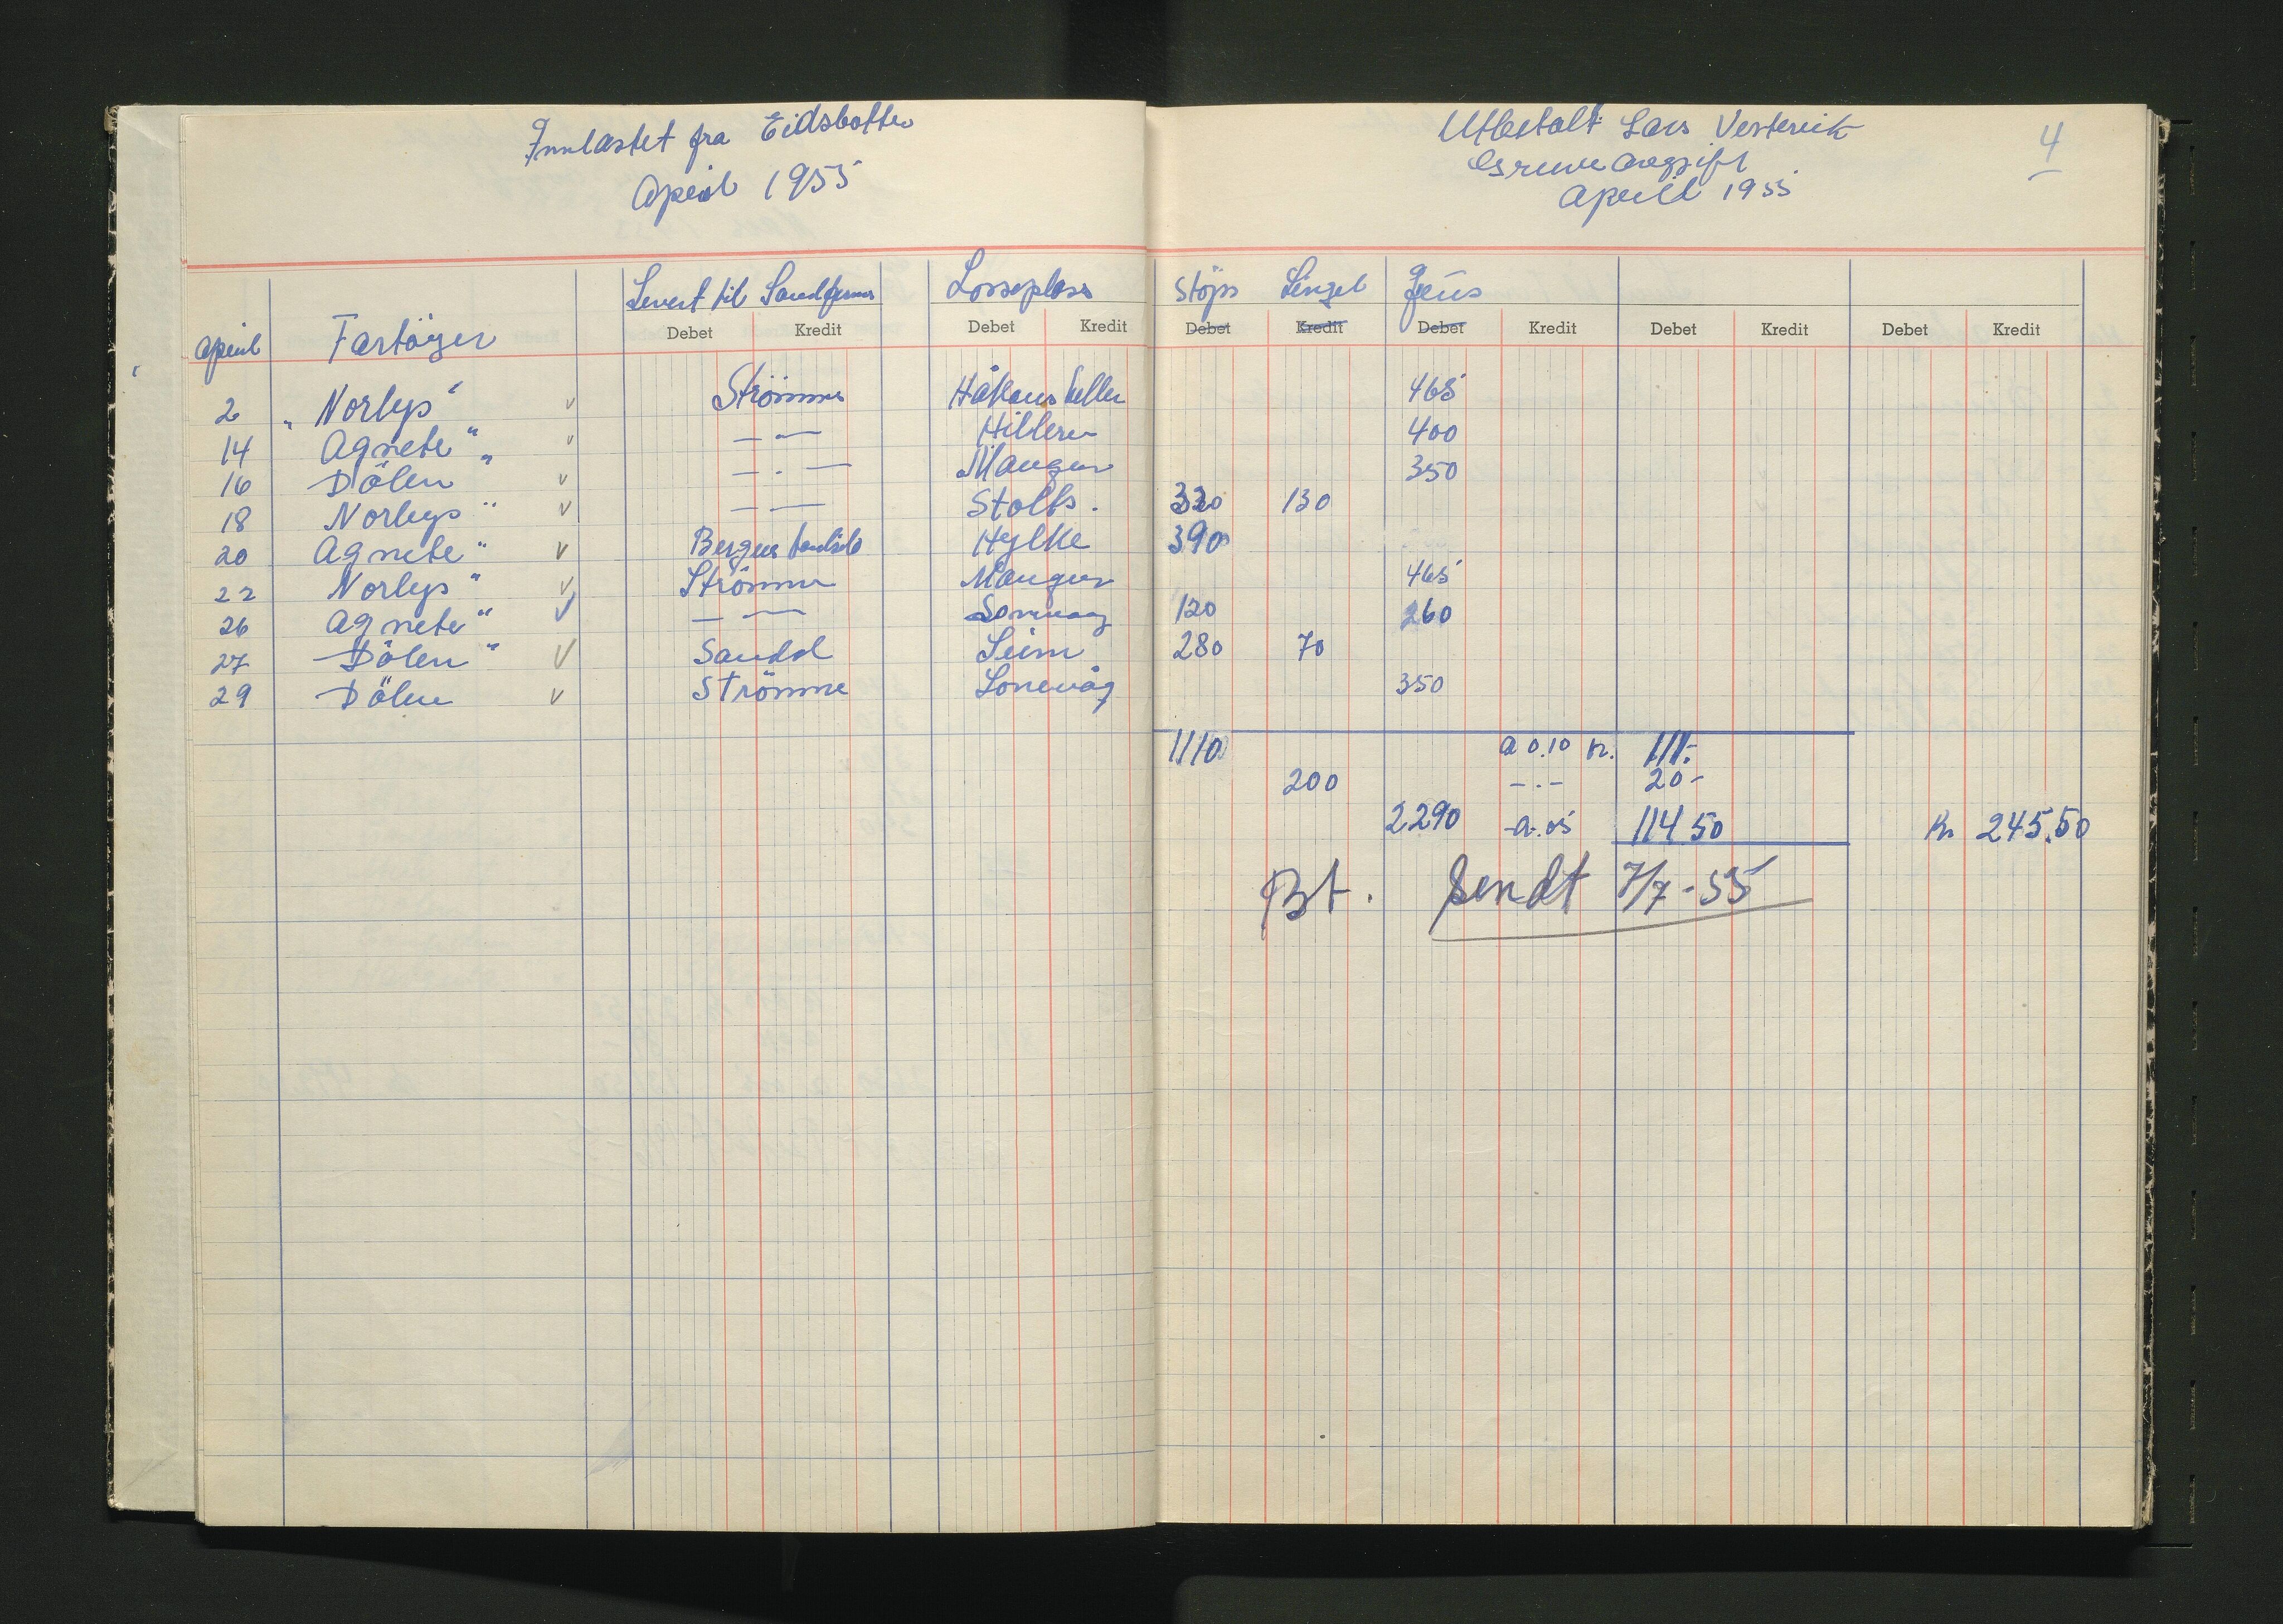 Innlastet fra Eidsbotten
April 1955
Utbetalt Lars Vestrevik
Gruveavgift
April 1955
4
Levert til Sandfirma Losseplass Støps Singel Grus
april Fartöyer Debet Kredit Debet Kredit Debet Kredit Debet Kredit Debet Kredit Debet Kredit
2 „Norlys" v Strömme Håkonshella 465
14 Agnete" v — — Hilleren 400
16 Dölen" v — . — Manger 350
18 Norlys" v — — Stolts. 320 130
20 Agnete" v Bergens Hylke 390
22 Norlys" v Strömme Manger 465
26 Agnete" v — — Sonevaag 120 260
27 Dölen" v Sandd Seim 280 70
29 Dölen v Strömme Lonevåg 350
1110 a 0.10 kr. 111.-
200 - . - 20 -
2290 -a- .05 114 50 Kr 245.50
Bt. Sendt 7/7 - 55